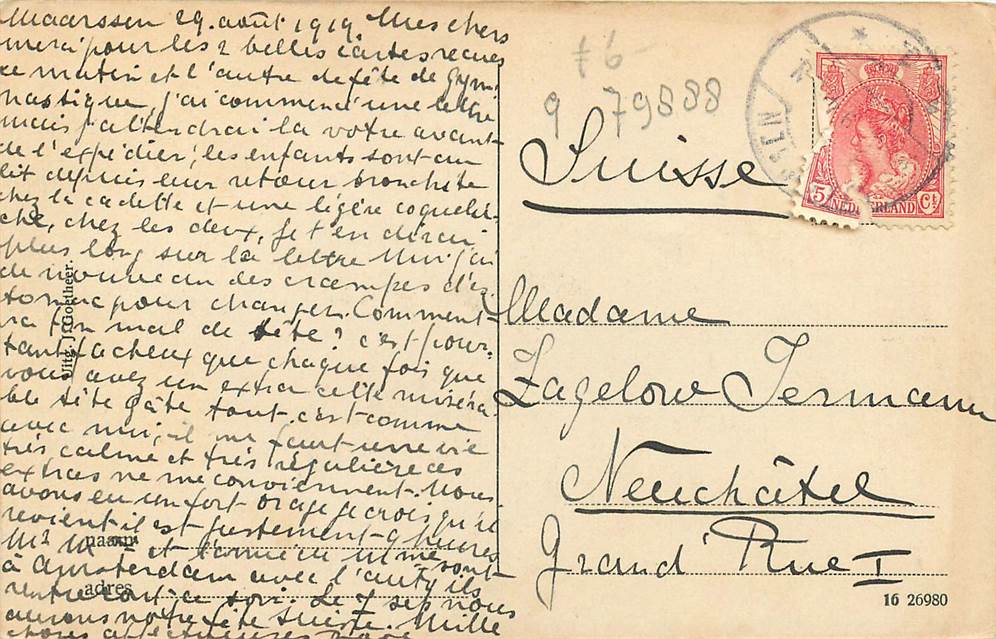 Maarssen 29. août 1919 Mes chers
merci pour les 2 belles cartes reçues
ce matin et l'autre de fête de gym
nastique, j'ai commencé une lettre
mais j'attendrai la votre avant
de l'expédier, les enfants sont au
lit depuis leur retour bronchite
chez la cadette et une légère coquelu
che, chez les deux, je t'en dirai
plus long sur la lettre Moi j'ai
de nouveau des crampes d'es
tomac pour changer. Comment
va ton mal de tête? c'est pour
tant fâcheux que chaque fois que
vous avez un extra cette miséra
ble tête gâte tout, c'est comme
avec moi, il me faut une vie
très calme et très régulière ces
extras ne me conviennent. Nous
avons eu un fort orage je crois qu'il
revient il est justement 9 heures
Mr M et l'ami
à Amsterdam avec l'auty ils
rentreront ce soir. Le 7 sep nous
aurons notre fête Suisse. Mille
choses affectueuses
Uitg. J. Goetheer.
naam
adres
f 6-
9 79888
Suisse
5 NEDERLAND Ct
Madame
Zagelow Jermann
Neuchâtel
Grand Rue I
16 26980